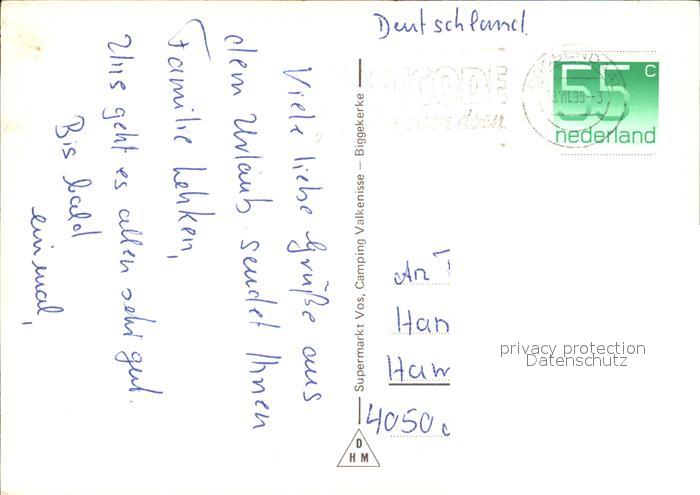 Deutschland
Viele liebe Grüße aus
dem Urlaub sendet Ihnen
Familie
Uns geht es allen sehr gut.
Bis bald
einmal,
Supermarkt Vos, Camping Valkenisse – Biggekerke
D
H M
55 c
nederland
An
Han
Ham
4050
privacy protection
Datenschutz